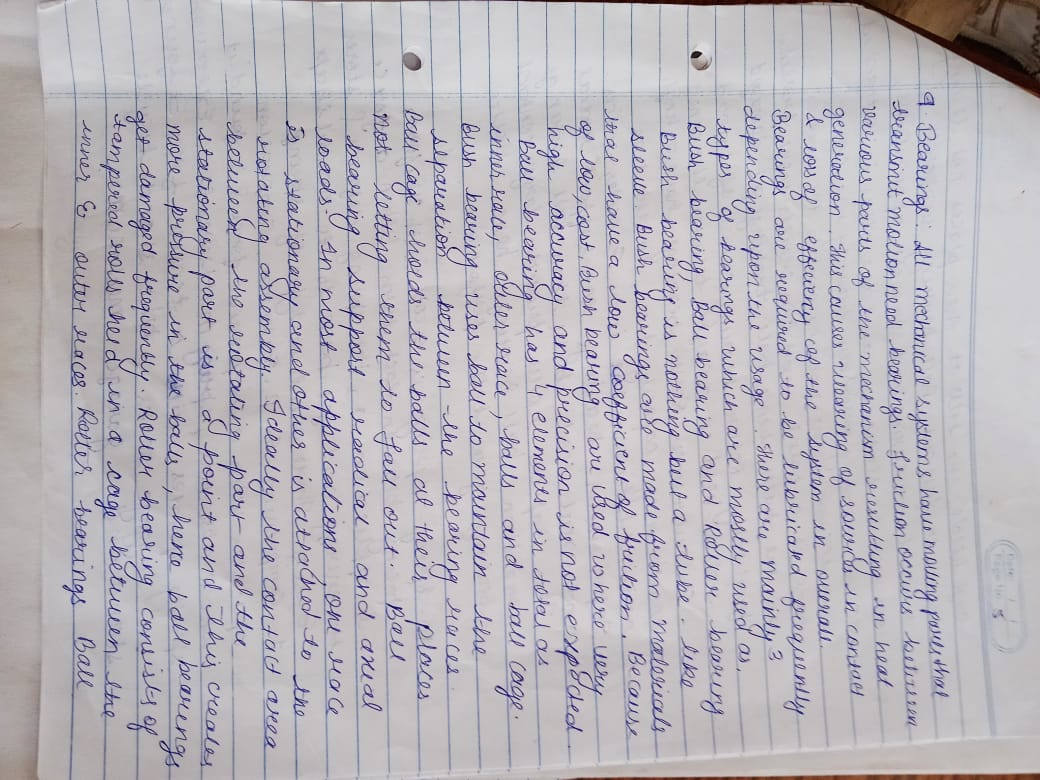 Page No. 8
9. Bearings: All mechanical systems have moving parts that
transmit motion need bearings. friction occurs between
various parts of the mechanism resulting in heat
generation. This causes wearing of sounds in contact
& loss of efficiency of the system in overall.
Bearings are required to be lubricated frequently
depending upon the usage. There are mainly 3
types of bearings which are mostly used as.
Bush bearing, Ball bearing and Roller bearing
Bush bearing is nothing but a tube. like
sleeve. Bush bearings are made from materials
that have a low coefficient of friction. Because
of low cost. Bush bearing are used where very
high accuracy and precision is not expected.
Ball bearing has 4 elements in total as
inner race, outer race, balls and ball cage.
Bush bearing uses ball to maintain the
separation between the bearing races.
Ball cage holds the balls at their places
not letting them to fall out. Ball
bearing support radial and axial
loads. In most applications one race
is stationary and other is attached to the
rotating assembly. Ideally the contact area
between the rotating part and the
stationary part is a point and this creates
more pressure in the balls, hence ball bearings
get damaged frequently. Roller bearing consists of
tampered rolls held in a cage between the
inner & outer races. Roller bearings Ball